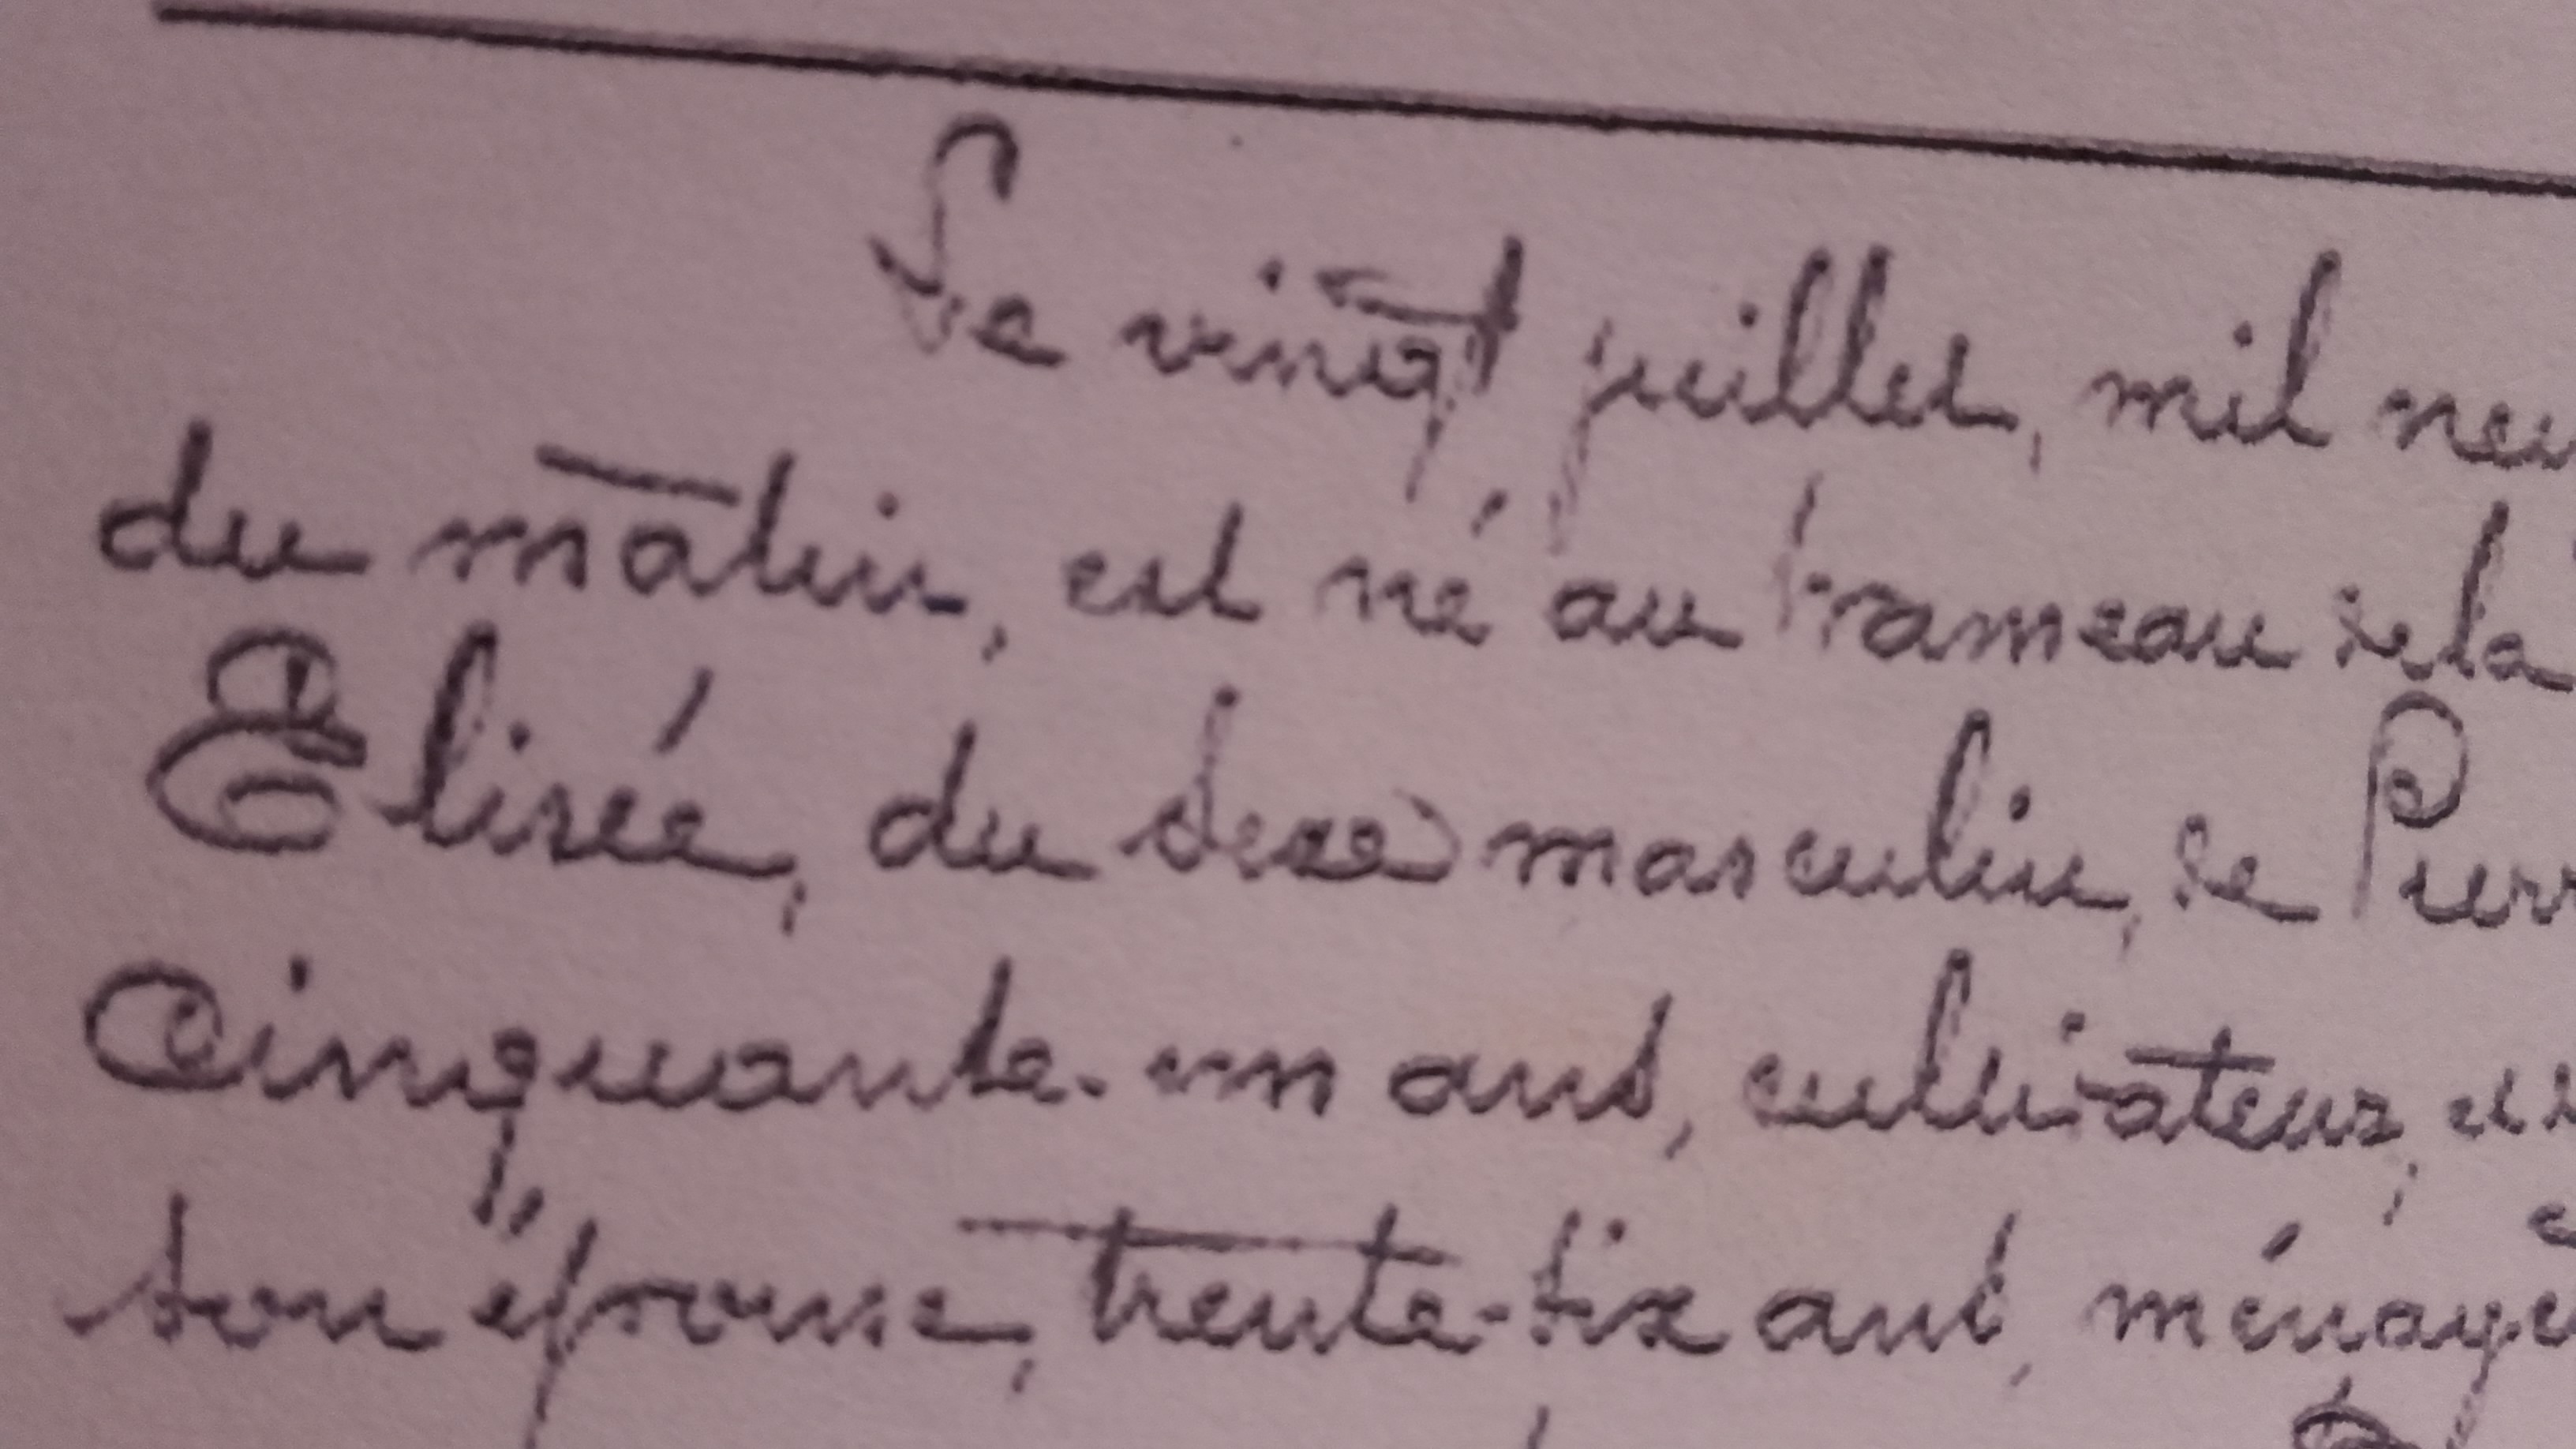 Le vingt juillet, mil neu
du matin, est né au hameau de la
Elisée, du sexe masculin, de Pierr
Cinquante-un ans, cultivateur, et
son épouse, trente-six ans, ménagè